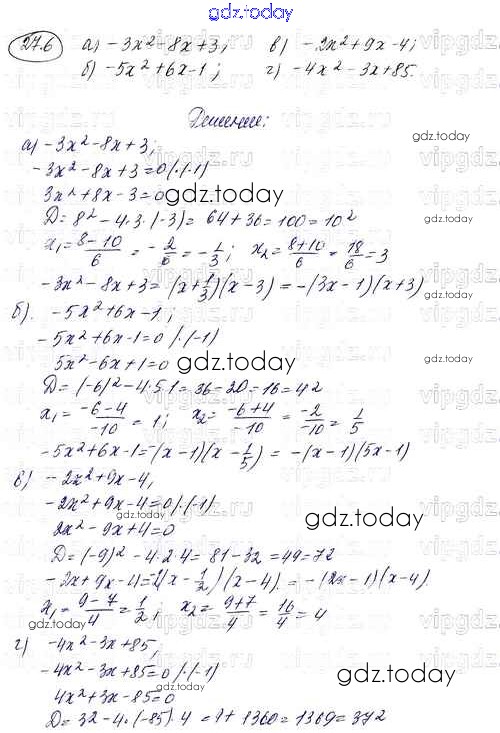 gdz.today
27.6 а) -3x² - 8x + 3; в) -2x² + 9x - 4;
б) -5x² + 6x - 1; г) -4x² - 3x + 85.
Решение:
а) -3x² - 8x + 3;
-3x² - 8x + 3 = 0 /·(-1)
3x² + 8x - 3 = 0
D = 8² - 4·3·(-3) = 64 + 36 = 100 = 10²
x₁ = (8-10)/6 = -2/6 = -1/3; x₂ = (8+10)/6 = 18/6 = 3
-3x² - 8x + 3 = (x + 1/3)(x - 3) = -(3x - 1)(x + 3)
б) -5x² + 6x - 1;
-5x² + 6x - 1 = 0 /·(-1)
5x² - 6x + 1 = 0
D = (-6)² - 4·5·1 = 36 - 20 = 16 = 4²
x₁ = (-6-4)/-10 = 1; x₂ = (-6+4)/-10 = -2/-10 = 1/5
-5x² + 6x - 1 = -(x - 1)(x - 1/5) = -(x - 1)(5x - 1)
в) -2x² + 9x - 4,
-2x² + 9x - 4 = 0 /·(-1)
2x² - 9x + 4 = 0
D = (-9)² - 4·2·4 = 81 - 32 = 49 = 7²
-2x + 9x - 4 = -(x - 1/2)(x - 4) = -(2x - 1)(x - 4).
x₁ = (9-7)/4 = 1/2; x₂ = (9+7)/4 = 16/4 = 4
г) -4x² - 3x + 85,
-4x² - 3x + 85 = 0 /·(-1)
4x² + 3x - 85 = 0
D = 3² - 4·(-85)·4 = 9 + 1360 = 1369 = 37²